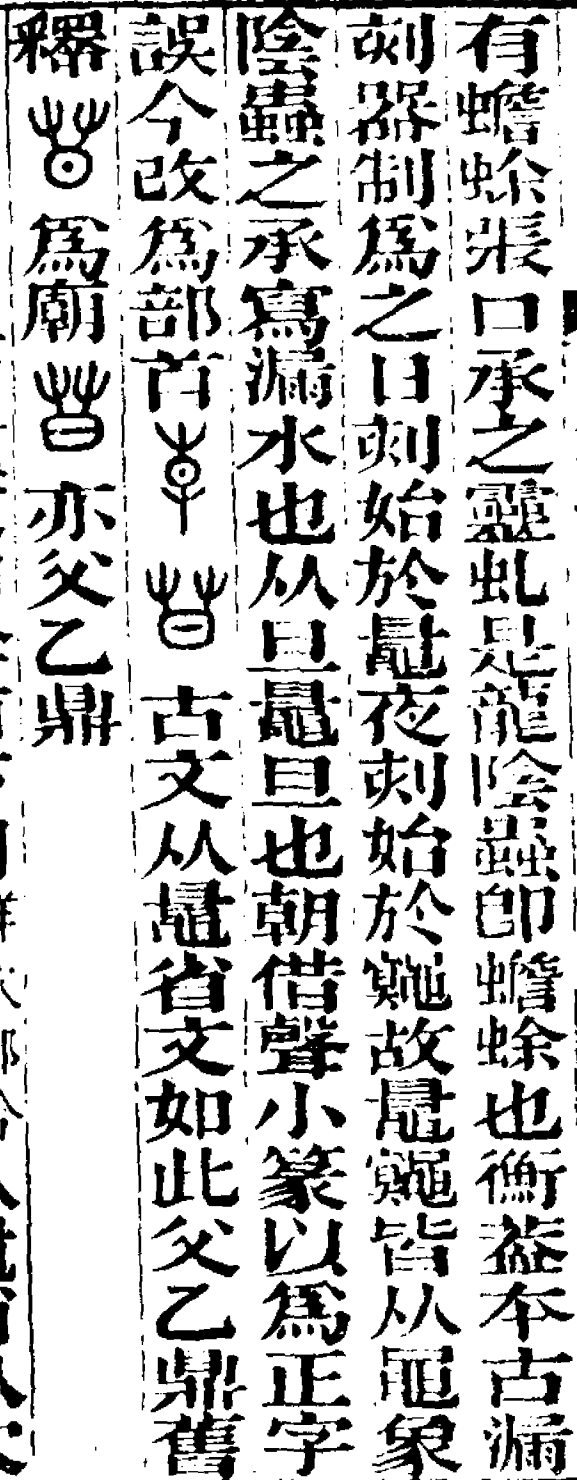 有蟾蜍張口承之靈虬是龍陰蟲卽蟾蜍也衡葢本古漏
刻器制爲之日刻始於鼂夜刻始於鼆故鼂鼆皆从黽象
陰蟲之承寫漏水也从旦鼂旦也朝借聲小篆以爲正字
誤今改爲部首 古文从鼂省文如此父乙鼎舊
釋 爲廟 亦父乙鼎